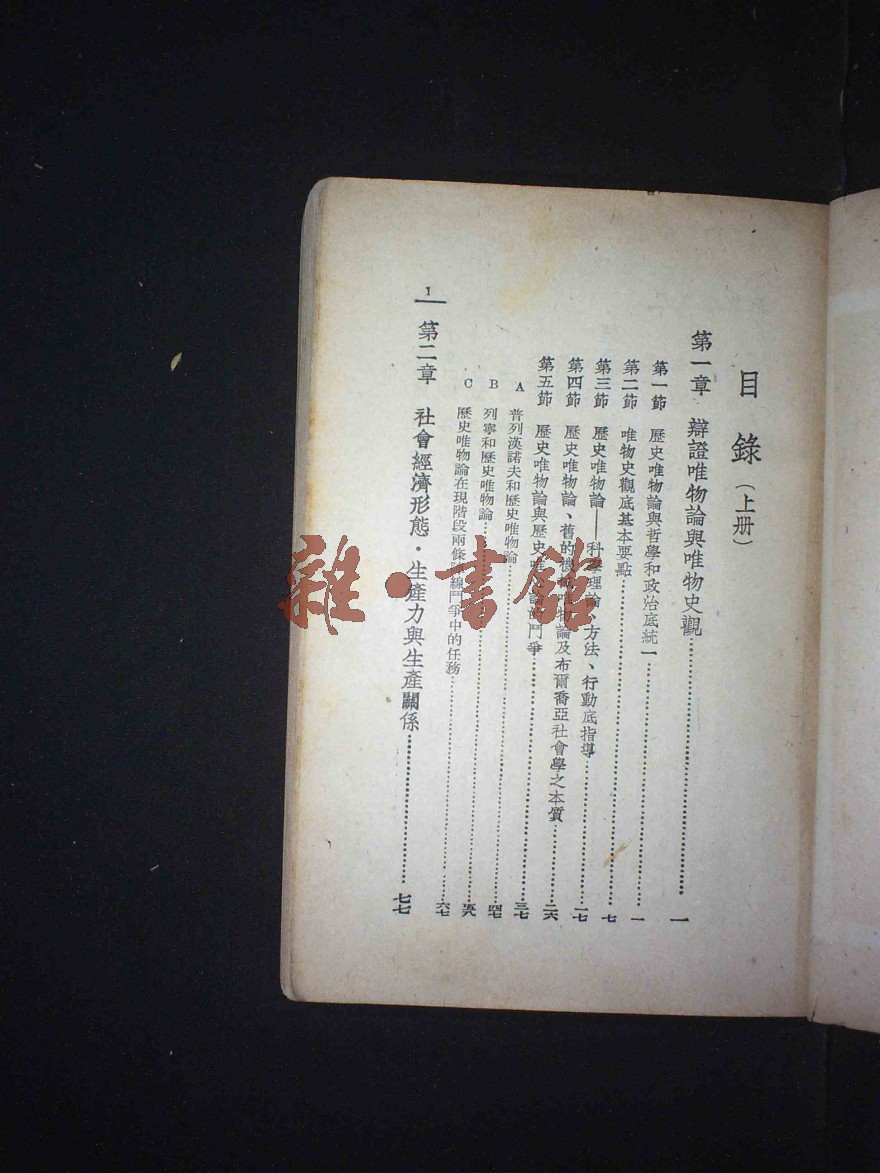 目錄（上册）
第一章　辯證唯物論與唯物史觀……一
第一節　歷史唯物論與哲學和政治底統一……一
第二節　唯物史觀底基本要點……七
第三節　歷史唯物論——科學理論、方法、行動底指導……一七
第四節　歷史唯物論、舊的機械唯物論及布爾喬亞社會學之本質……二六
第五節　歷史唯物論與歷史唯心論的鬥爭……三七
A　普列漢諾夫和歷史唯物論……四七
B　列寧和歷史唯物論……五八
C　歷史唯物論在現階段兩條陣線鬥爭中的任務……六七
第二章　社會經濟形態・生產力與生產關係……七七
1
雜・書館